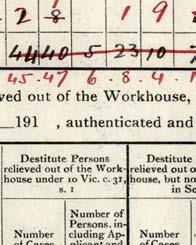 2 8 1 9
4440 5 23 10
45.47 6.8.4.
ved out of the Workhouse,
191 , authenticated and
Destitute Persons
relieved out of the Work-
house under 10 Vic. c. 31,
s. 1
Destitute
relieved out o
house, but no
in Se
Number
of
Cases
Number of
Persons, in-
cluding Ap-
plicant and
Number
of
Cases